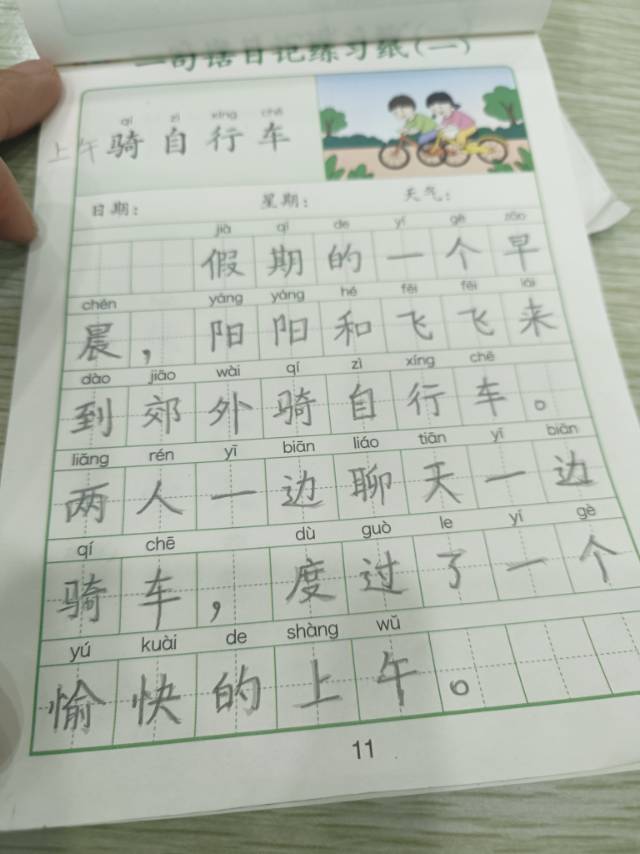 一句话日记练习纸(一)
qí zì xíng chē
上午骑自行车
日期: 星期: 天气:
jià qī de yí gè zǎo
假期的一个早
chén yáng yáng hé fēi fēi lái
晨,阳阳和飞飞来
dào jiāo wài qí zì xíng chē
到郊外骑自行车。
liǎng rén yī biān liáo tiān yī biān
两人一边聊天一边
qí chē dù guò le yí gè
骑车,度过了一个
yú kuài de shàng wǔ
愉快的上午。
11